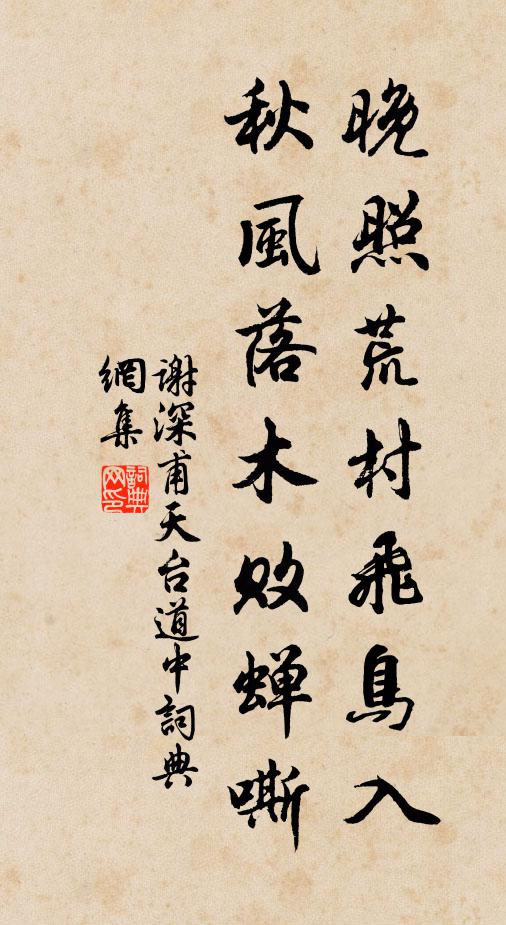 晚照荒村飛鳥入
秋風落木敗蝉嘶
谢深甫天台道中詞典
網集
詞典
网印